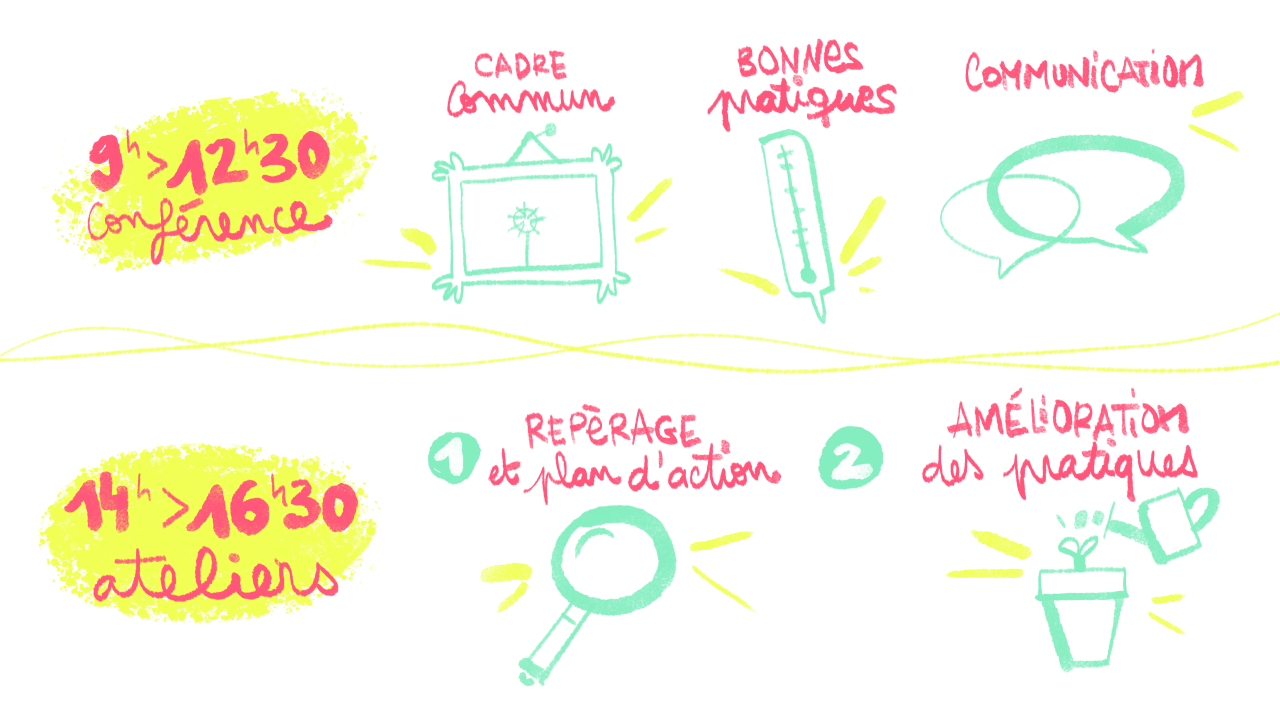 9h > 12h30
conférence
CADRE
commun
BONNES
pratiques
COMMUNiCATiON
14h > 16h30
ateliers
1
REPèRAGE
et plan d'action
2
AMÉLiORATiON
des pratiques